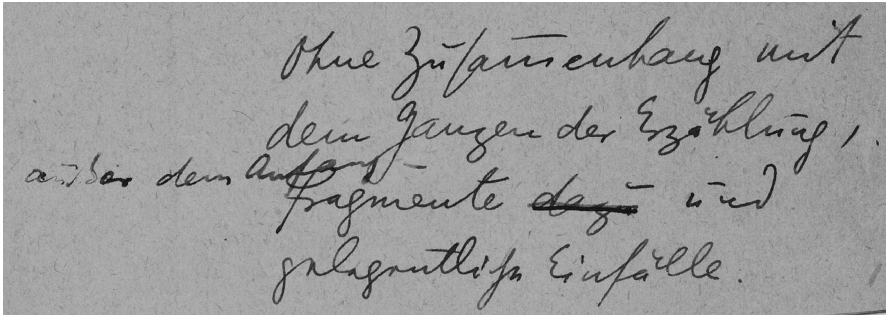 Ohne Zusammenhang mit
dem Ganzen der Erzählung,
außer dem Anfang
Fragmente dazu und
gelegentliche Einfälle.